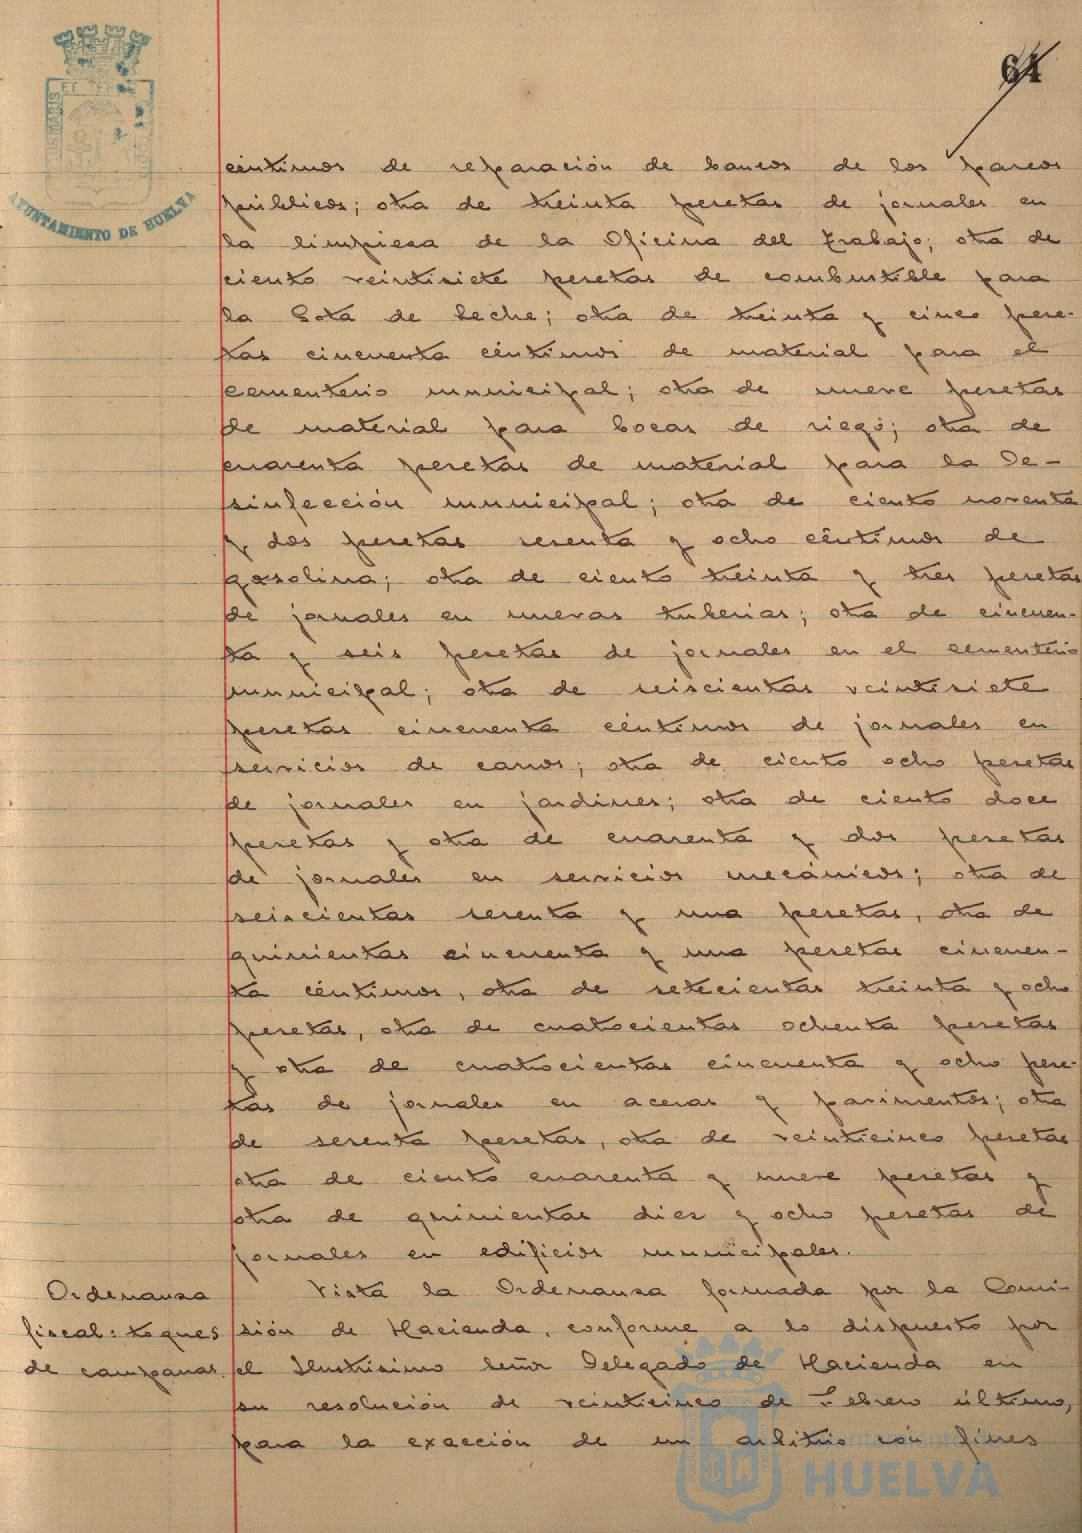 64
AYUNTAMIENTO DE HUELVA
céntimos de reparación de bancos de los paseos
públicos; otra de treinta pesetas de jornales en
la limpieza de la Oficina del Trabajo; otra de
ciento veintisiete pesetas de combustible para
la Gota de Leche; otra de treinta y cinco pese-
tas cincuenta céntimos de material para el
cementerio municipal; otra de nueve pesetas
de material para bocas de riego; otra de
cuarenta pesetas de material para la De-
sinfección municipal; otra de ciento noventa
y dos pesetas sesenta y ocho céntimos de
gasolina; otra de ciento treinta y tres pesetas
de jornales en nuevas tuberias; otra de cincuen-
ta y seis pesetas de jornales en el cementerio
municipal; otra de seiscientas veintisiete
pesetas cincuenta céntimos de jornales en
servicios de carros; otra de ciento ocho pesetas
de jornales en jardines; otra de ciento doce
pesetas y otra de cuarenta y dos pesetas
de jornales en servicios mecánicos; otra de
seiscientas sesenta y una pesetas, otra de
quinientas cincuenta y una pesetas cincuen-
ta céntimos, otra de setecientas treinta y ocho
pesetas, otra de cuatrocientas ochenta pesetas
y otra de cuatrocientas cincuenta y ocho pese-
tas de jornales en aceras y pavimentos; otra
de sesenta pesetas, otra de veinticinco pesetas
otra de ciento cuarenta y nueve pesetas y
otra de quinientas diez y ocho pesetas de
jornales en edificios municipales.
Ordenanza
fiscal: toques
de campanas.
Vista la Ordenanza formada por la Comi-
sión de Hacienda, conforme a lo dispuesto por
el Ilustrisimo Señor Delegado de Hacienda en
su resolución de veinticinco de Febrero último,
para la exacción de un arbitrio con fines
Ayuntamiento de
HUELVA